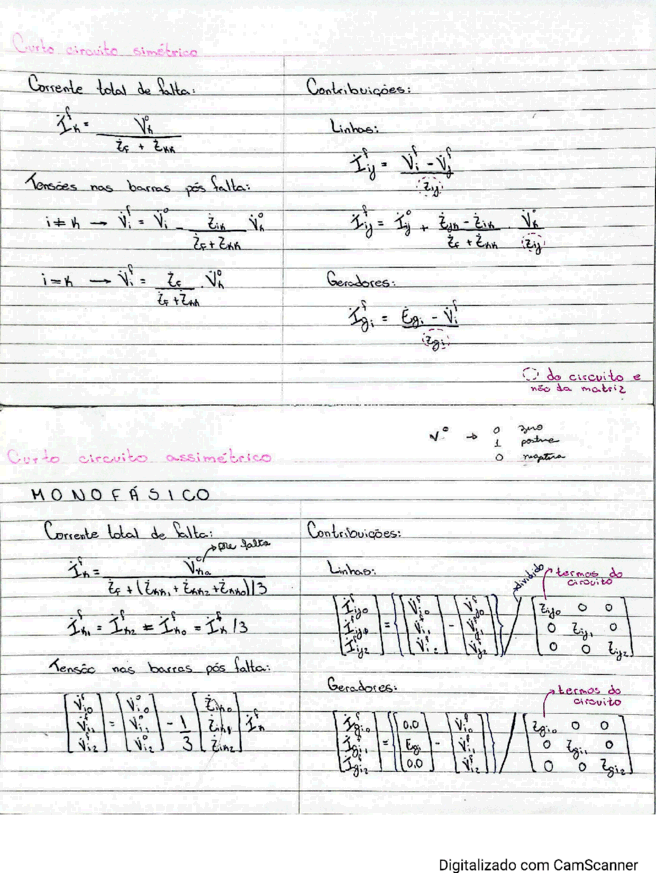 Curto circuito simétrico
Corrente total de falta:
İᶠₖ = V̇⁰ₖ / (ŻF + Żₖₖ)
Tensões nas barras pós falta:
i ≠ k → V̇ᶠᵢ = V̇⁰ᵢ - Żᵢₖ / (ŻF + Żₖₖ) V̇⁰ₖ
i = k → V̇ᶠᵢ = ŻF / (ŻF + Żₖₖ) . V̇⁰ₖ
Contribuições:
Linhas:
İᶠij = (V̇ᶠi - V̇ᶠj) / żij
İᶠij = İ⁰ij + (Żjk - Żik) / (ŻF + Żkk) . V̇k / żij
Geradores:
İᶠgi = (Ėgi - V̇ᶠi) / żgi
do circuito e
não da matriz
V⁰ → 0 zero
1 positiva
0 negativa
Curto circuito assimétrico
MONOFÁSICO
Corrente total de falta:
pré falta
İᶠk = V̇⁰ka / (ŻF + (Żkk1 + Żkk2 + Żkk0)/3)
İᶠk1 = İᶠk2 = İᶠk0 = İᶠk /3
Tensão nas barras pós falta:
[V̇ᶠi0 V̇ᶠi1 V̇ᶠi2] = [V̇⁰i0 V̇⁰i1 V̇⁰i2] - 1/3 [Żik0 Żik1 Żik2] İᶠk
Contribuições:
Linhas:
dividido
termos do
circuito
[İᶠij0 İᶠij1 İᶠij2] = {[V̇ᶠi0 V̇ᶠi1 V̇ᶠi2] - [V̇ᶠj0 V̇ᶠj1 V̇ᶠj2]} / [żij0 0 0
0 żij1 0
0 0 żij2]
Geradores:
termos do
circuito
[İᶠgi0 İᶠgi1 İᶠgi2] = {[0,0 Egi 0,0] - [V̇ᶠi0 V̇ᶠi1 V̇ᶠi2]} / [żgi0 0 0
0 żgi1 0
0 0 żgi2]
Digitalizado com CamScanner